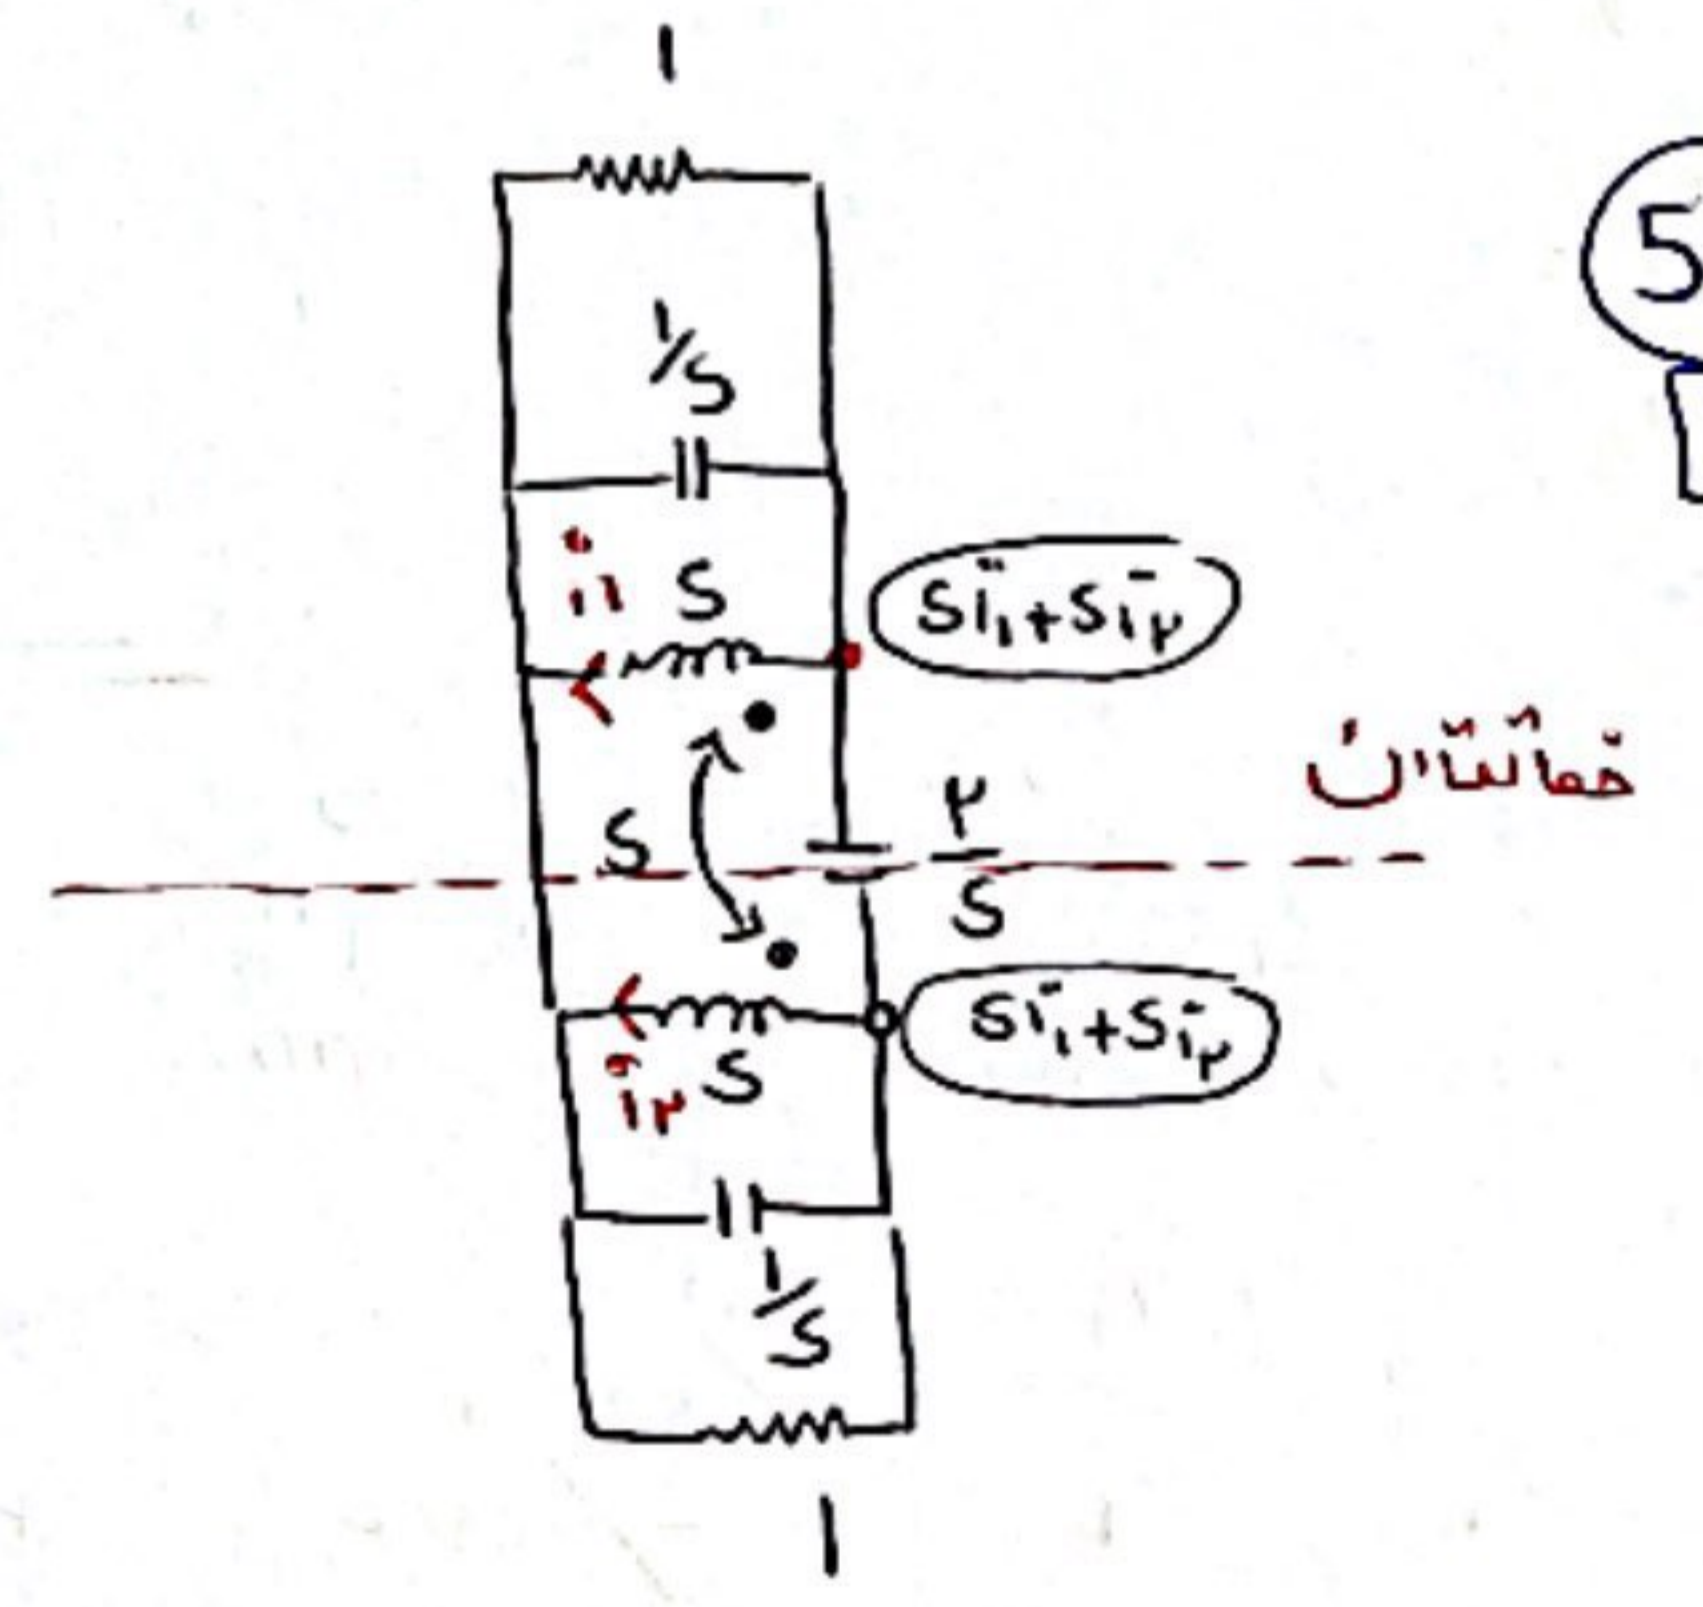 1
5
1/S
i۱ S
Si₁+Si۲
خط تقارن
S
۲/S
Si₁+Si۲
i۲ S
1/S
1